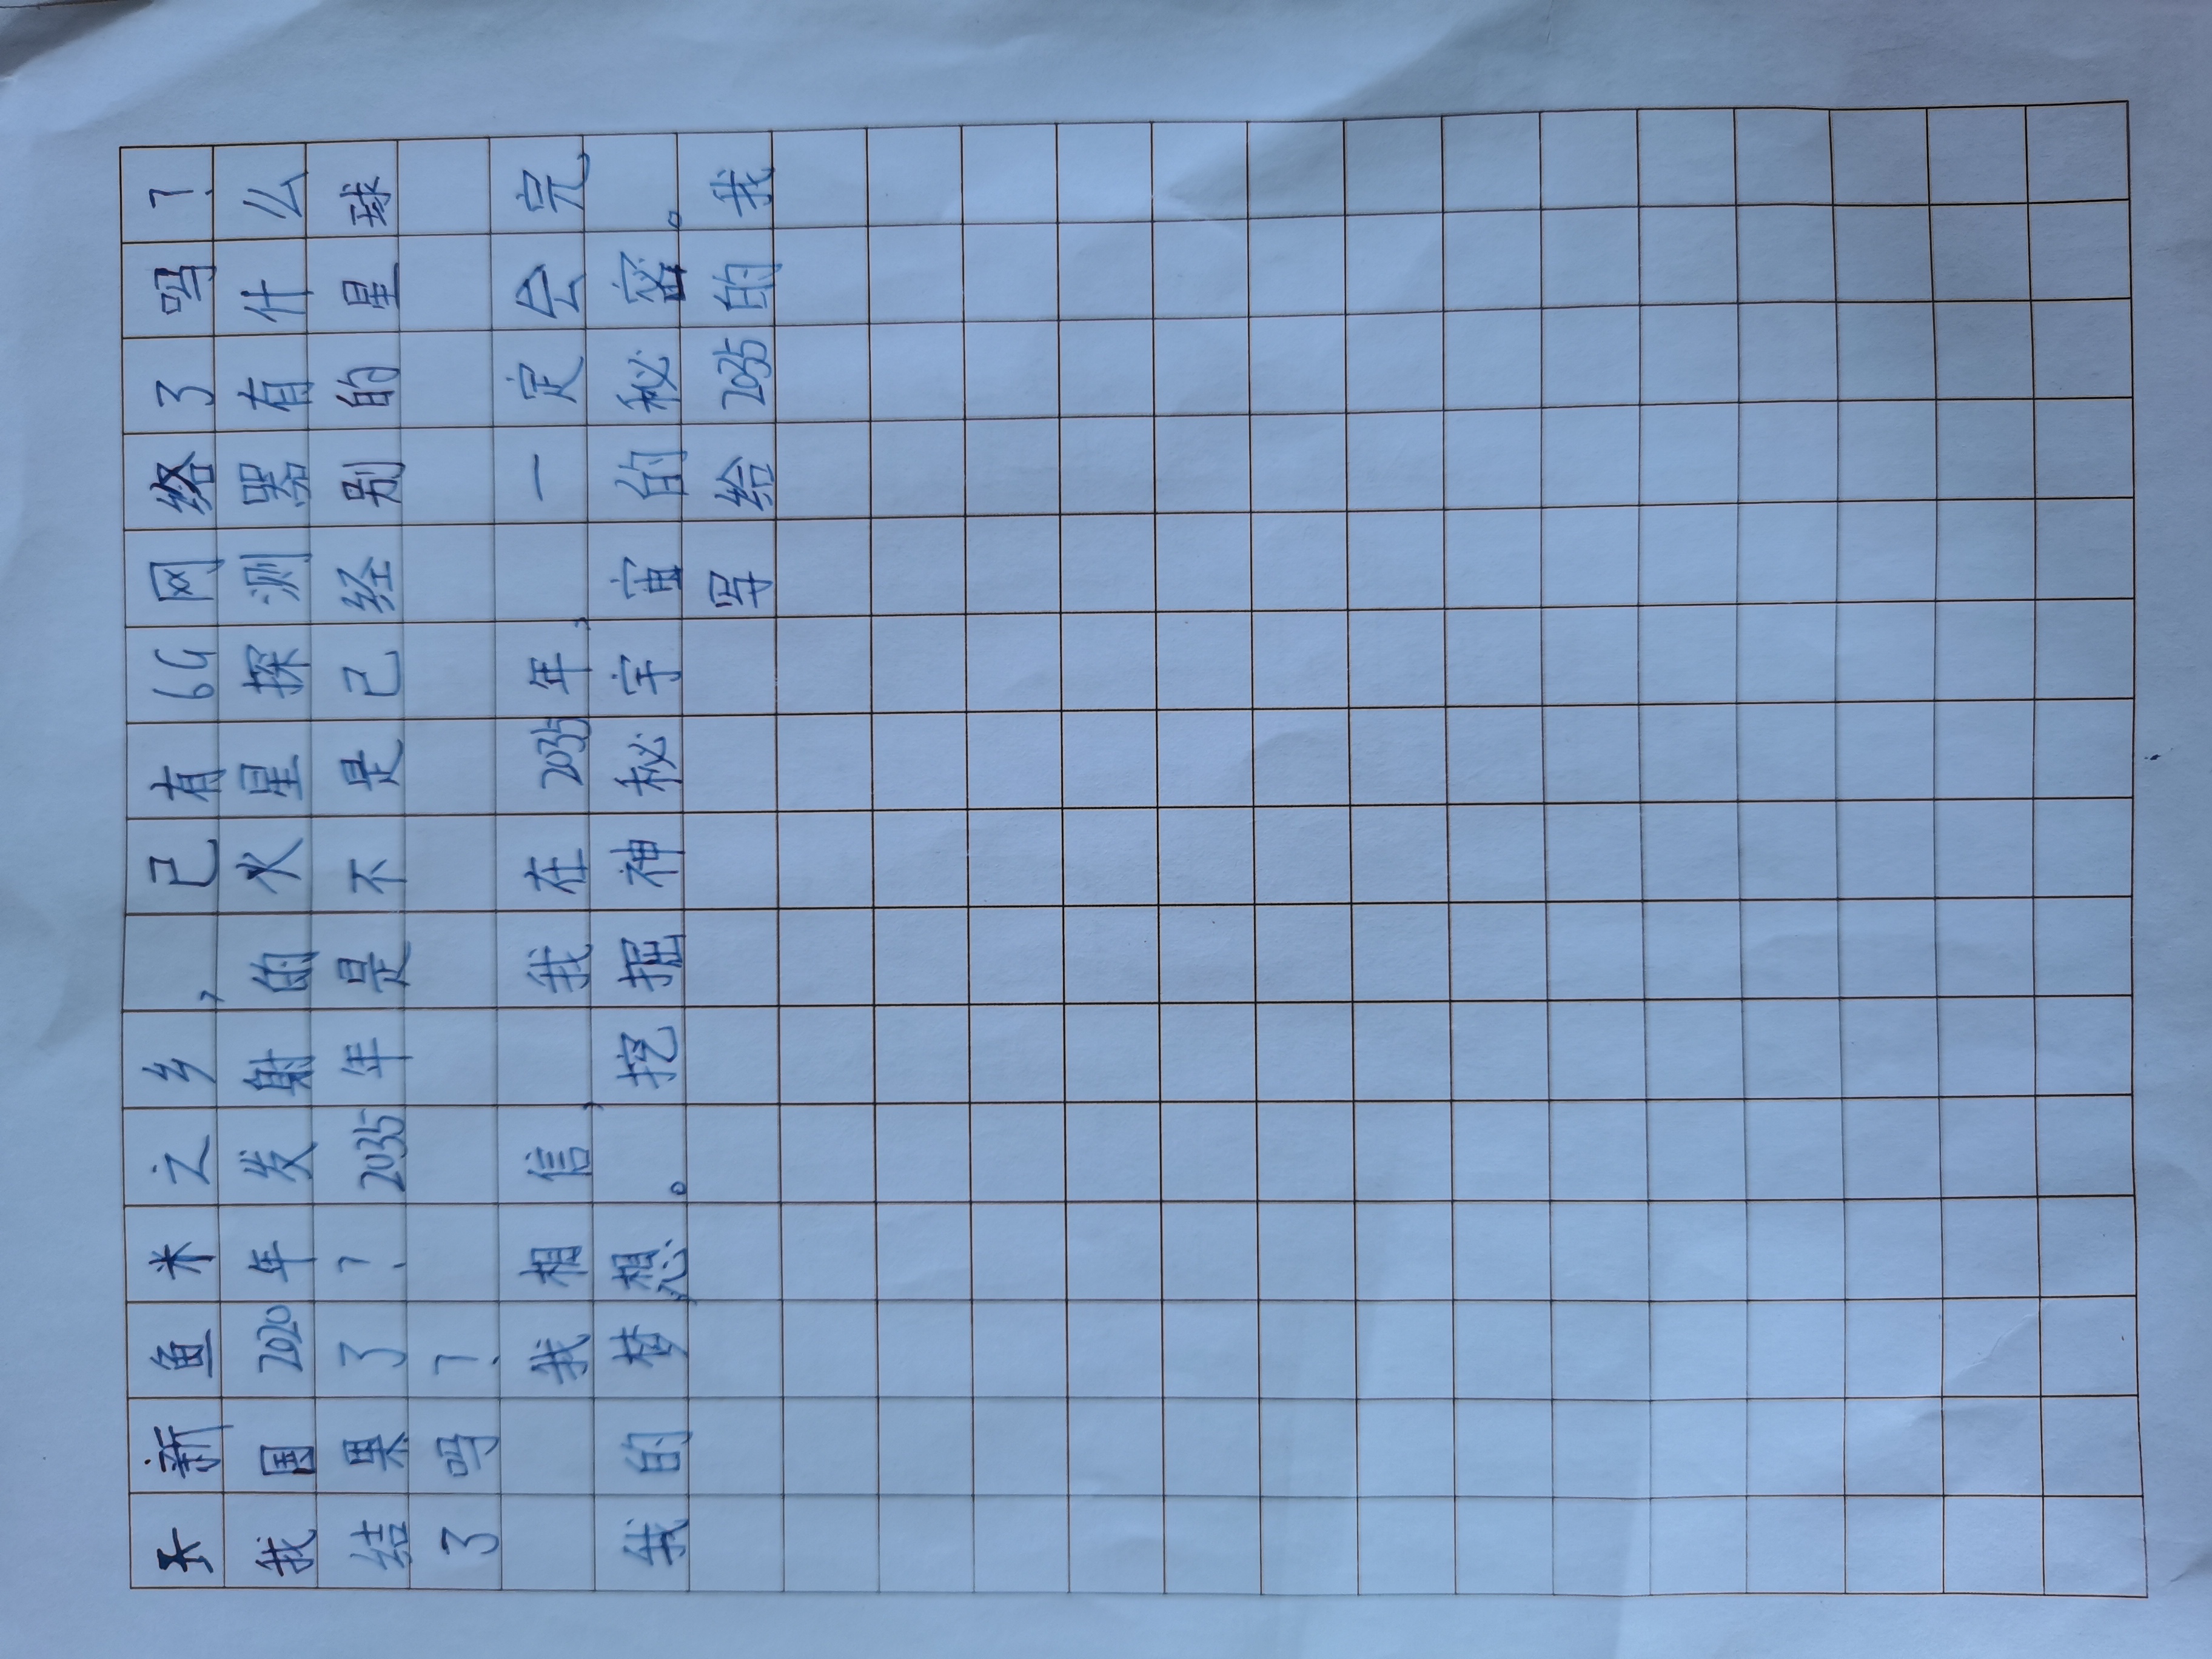 新鱼米之乡，己有6G网络了吗？
我国2020年发射的火星探测器有什么
结果了？2035年是不是己经别的星球
了吗？
我相信，我在2035年，一定会完
我的梦想。挖掘神秘宇宙的秘密。
写给2035的我